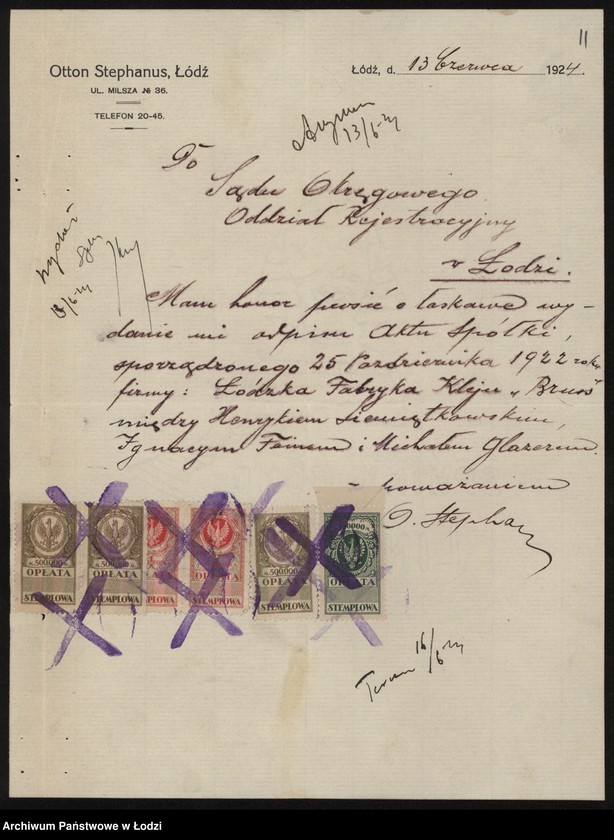 11
Otton Stephanus, Łódź
UL. MILSZA № 36.
TELEFON 20-45.
Łódź, d. 13 Czerwca 1924.
13/6 24
Do
Sądu Okręgowego
Oddział Rejestracyjny
w Łodzi.
Mam honor prosić o łaskawe wy-
danie mi odpisu Aktu Spółki,
sporządzonego 25 Października 1922 roku
firmy: Łódzka Fabryka Kleju „Brus"
między Henrykiem Siemiątkowskim,
Ignacym Feinem i Michałem Glazerem.
poważaniem
O. Stephan
500.000
OPŁATA
STEMPLOWA
500.000
OPŁATA
STEMPLOWA
OPŁATA
STEMPLOWA
500.000
OPŁATA
STEMPLOWA
OPŁATA
STEMPLOWA
16/6 24
Archiwum Państwowe w Łodzi